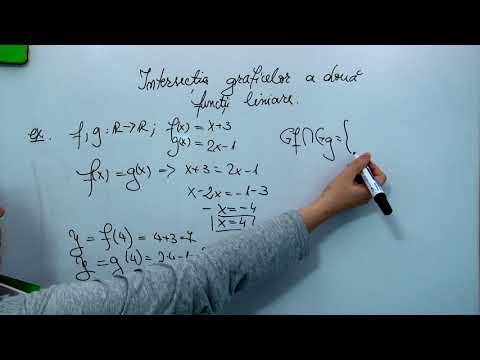 Intersectia graficelor a două
funcții liniare.
ex. f,g: R→R; f(x)=x+3
g(x)=2x-1
f(x)=g(x) => x+3=2x-1
x-2x=-1-3
-x=-4
x=4
y=f(4)=4+3=7
y=g(4)=2·4-1=
Gf∩Gg={